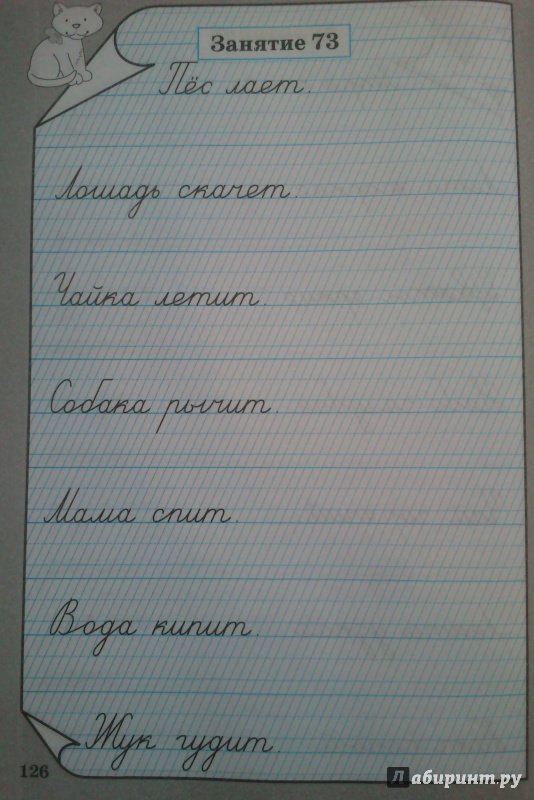 Занятие 73
Пёс лает.
Лошадь скачет.
Чайка летит.
Собака рычит.
Мама спит.
Вода кипит.
Жук гудит.
126
Лабиринт.ру